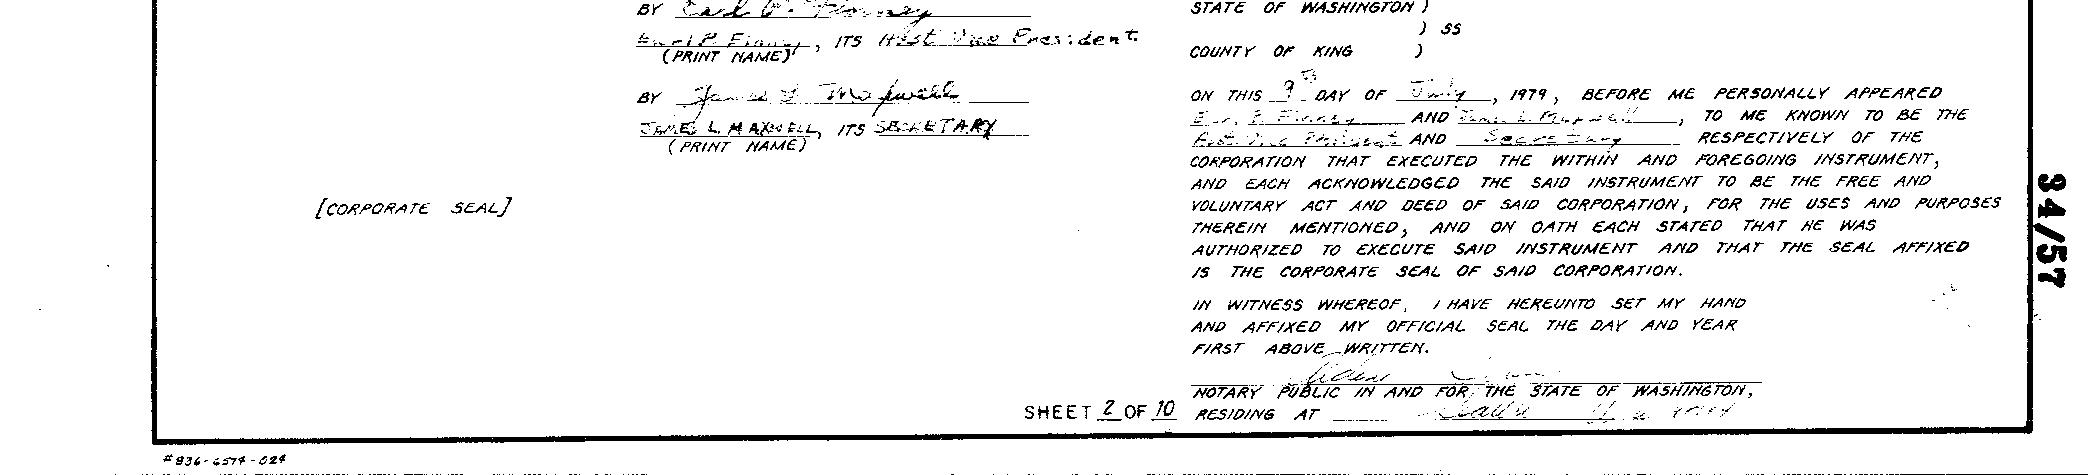 BY Earl P. Finney
Earl P. Finney, ITS Asst Vice President
(PRINT NAME)
BY James L Maxwell
JAMES L. MAXWELL, ITS SECRETARY
(PRINT NAME)
[CORPORATE SEAL]
STATE OF WASHINGTON )
) SS
COUNTY OF KING )
ON THIS 9TH DAY OF July, 1979, BEFORE ME PERSONALLY APPEARED
Earl P. Finney AND James L. Maxwell, TO ME KNOWN TO BE THE
Asst. Vice President AND Secretary RESPECTIVELY OF THE
CORPORATION THAT EXECUTED THE WITHIN AND FOREGOING INSTRUMENT,
AND EACH ACKNOWLEDGED THE SAID INSTRUMENT TO BE THE FREE AND
VOLUNTARY ACT AND DEED OF SAID CORPORATION, FOR THE USES AND PURPOSES
THEREIN MENTIONED, AND ON OATH EACH STATED THAT HE WAS
AUTHORIZED TO EXECUTE SAID INSTRUMENT AND THAT THE SEAL AFFIXED
IS THE CORPORATE SEAL OF SAID CORPORATION.
IN WITNESS WHEREOF, I HAVE HEREUNTO SET MY HAND
AND AFFIXED MY OFFICIAL SEAL THE DAY AND YEAR
FIRST ABOVE WRITTEN.
NOTARY PUBLIC IN AND FOR THE STATE OF WASHINGTON,
RESIDING AT
SHEET 2 OF 10
94/57
#836-6574-024